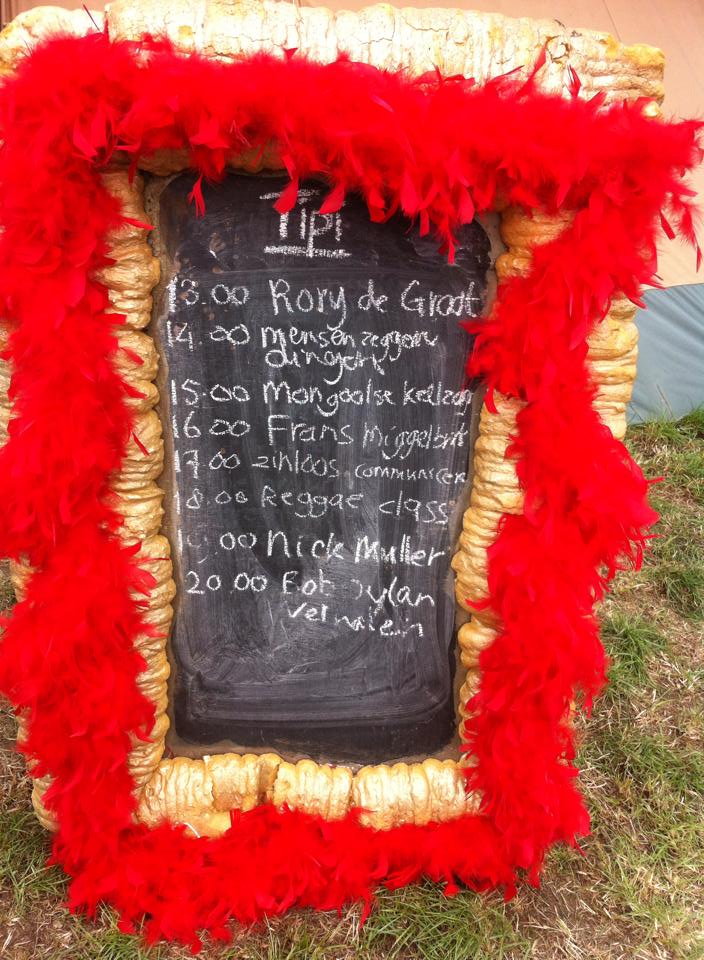 Tipi
13.00 Rory de Groot
14.00 mensen zeggen
dingen
15.00 Mongoolse keelzang
16.00 Frans Miggelbrink
17.00 zinloos
18.00 Reggae class
19.00 Nick Muller
20.00 Bob Dylan